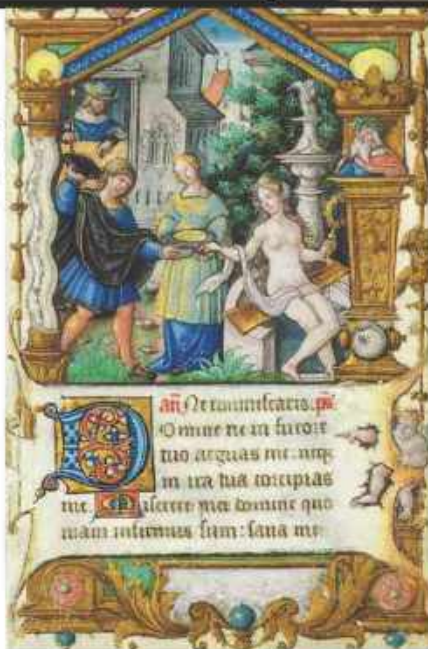 añ Ne reminiscaris. ps.
Domine ne in furore
tuo arguas me: neqȝ
in ira tua corripias
me. Miserere mei domine quo
niam infirmus sum: sana me